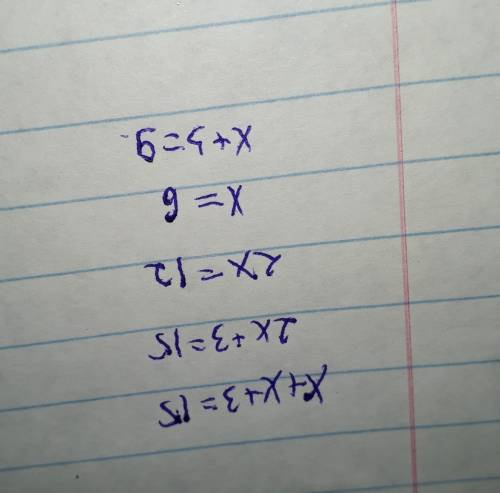 x+x+3=15
2x+3=15
2x=12
x=6
x+3=9